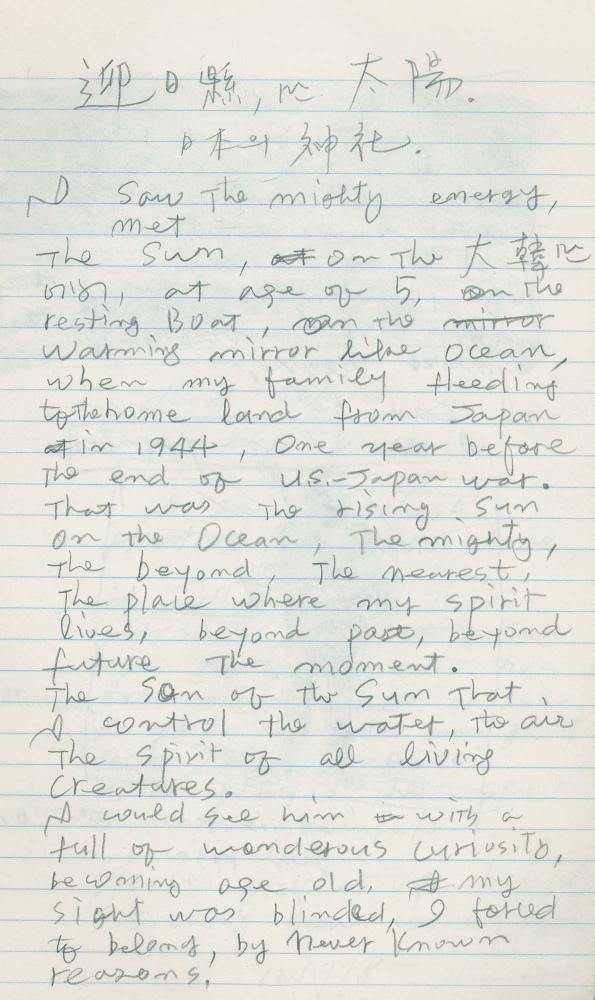 迎日縣, 太陽.
日本의 神社.
I saw The mighty energy,
met
The Sun, at on The 大韓
at age of 5, on The
resting Boat, on The mirror
warming mirror like Ocean,
when my family fleeding
to the home land from Japan
at in 1944, One year before
The end of U.S.-Japan war.
That was The rising Sun
on the Ocean, The mighty,
The beyond, The nearest,
The place where my spirit
lives, beyond past, beyond
future The moment.
The Son of the Sun That
I control the water, the air
The spirit of all living
Creatures.
I could see him in with a
full of wonderous curiosity,
becoming age old, my
sight was blinded, I forced
to belong, by never known
reasons,